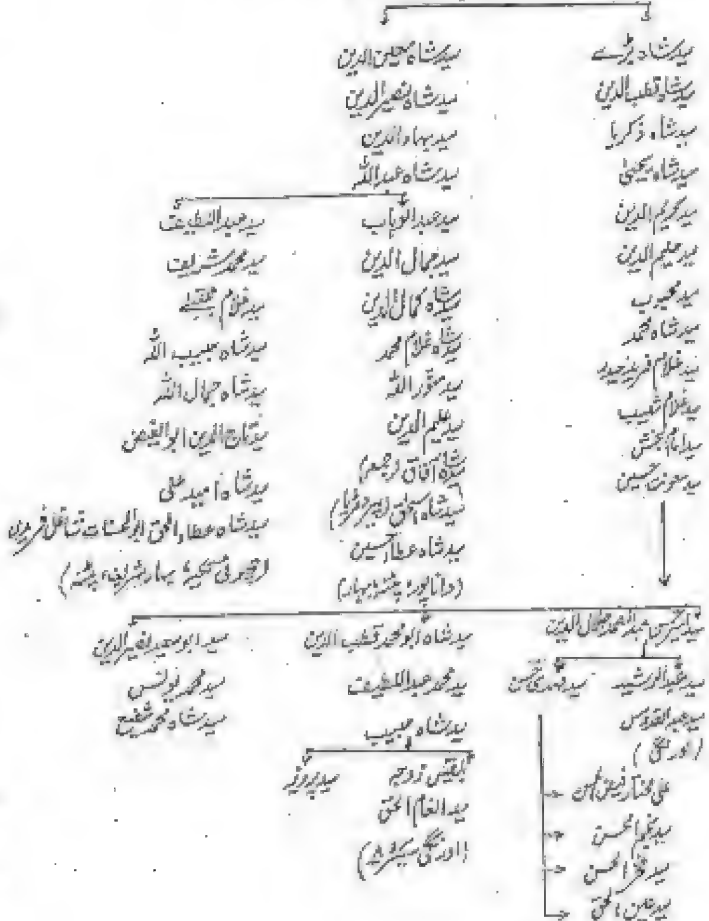 سید شاہ بڑے
سید شاہ قطب الدین
سید شاہ زکریا
سید شاہ یحییٰ
سید کریم الدین
سید علیم الدین
سید محبوب
سید شاہ محمد
سید غلام فرید حیدر
سید غلام شعیب
سید امام بخش
سید حسین
سید شاہ معین الدین
سید شاہ نصیر الدین
سید بہاء الدین
سید شاہ عبداللہ
سید عبدالوہاب
سید جمال الدین
سید شاہ کمال الدین
سید شاہ غلام محمد
سید منور اللہ
سید علیم الدین
سید شاہ آفاق
سید شاہ اسحٰق
سید شاہ عطا حسین
(داناپور، پٹنہ، بہار)
سید عبداللطیف
سید محمد شریف
سید غلام
سید شاہ حبیب اللہ
سید شاہ جمال اللہ
سید تاج الدین ابوالفیض
سید شاہ امید علی
سید شاہ عطاء الحق ابوالحسنات
بہار شریف، پٹنہ)
جلال الدین
سید عبدالرشید
سید عبدالقدوس
(اورنگی)
سید مہدی حسن
سید نجم الحسن
سید فخر الحسن
سید عین الحق
سید شاہ ابو محمد قطب الدین
سید محمد عبداللطیف
سید شاہ حبیب
بلقیس زوجہ
سید انعام الحق
(اورنگی سیکٹر)
سید پرویز
سید ابو سعید نصیر الدین
سید محمد یونس
سید شاہ محمد شفیع